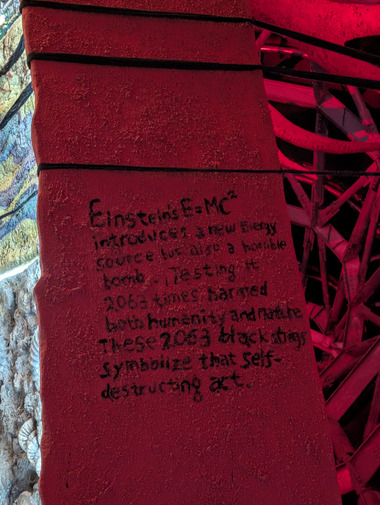 Einstein's E=MC²
introduces a new Energy
source but also a horrible
bomb. Testing it
2063 times harmed
both humanity and nature
These 2063 black strings
symbolize that self-
destructing act.